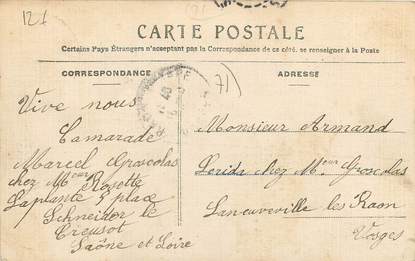 121
CARTE POSTALE
Certains Pays Étrangers n'acceptant pas la Correspondance de ce côté, se renseigner à la Poste
CORRESPONDANCE
Vive nous
Camarade
Marcel Groscolas
chez Meur Rosette
Laplante 5 place
Schneidor le
Creusot
Saône et Loire
71)
ADRESSE
Monsieur Armand
Lorida chez Mr Groscolas
Laneuveville les Raon
Vosges